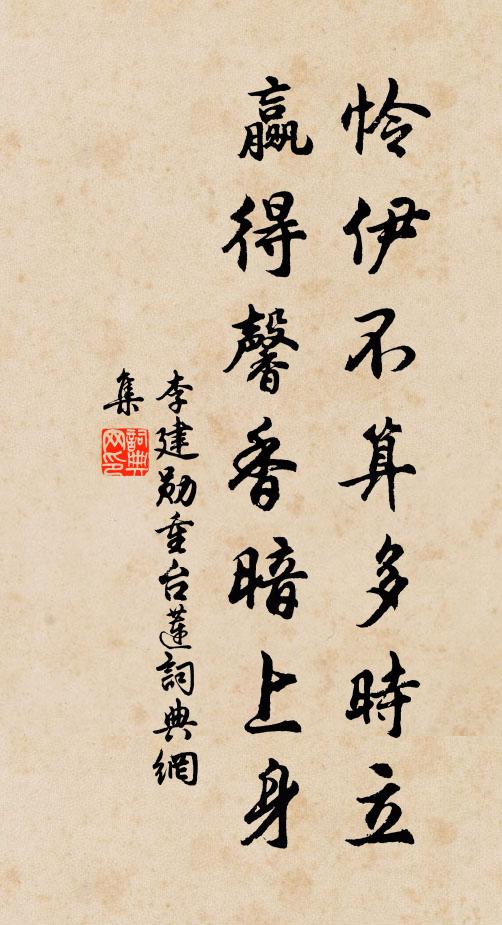 怜伊不算多時立
贏得馨香暗上身
李建勛重台蓮詞典網
集
詞典
网印